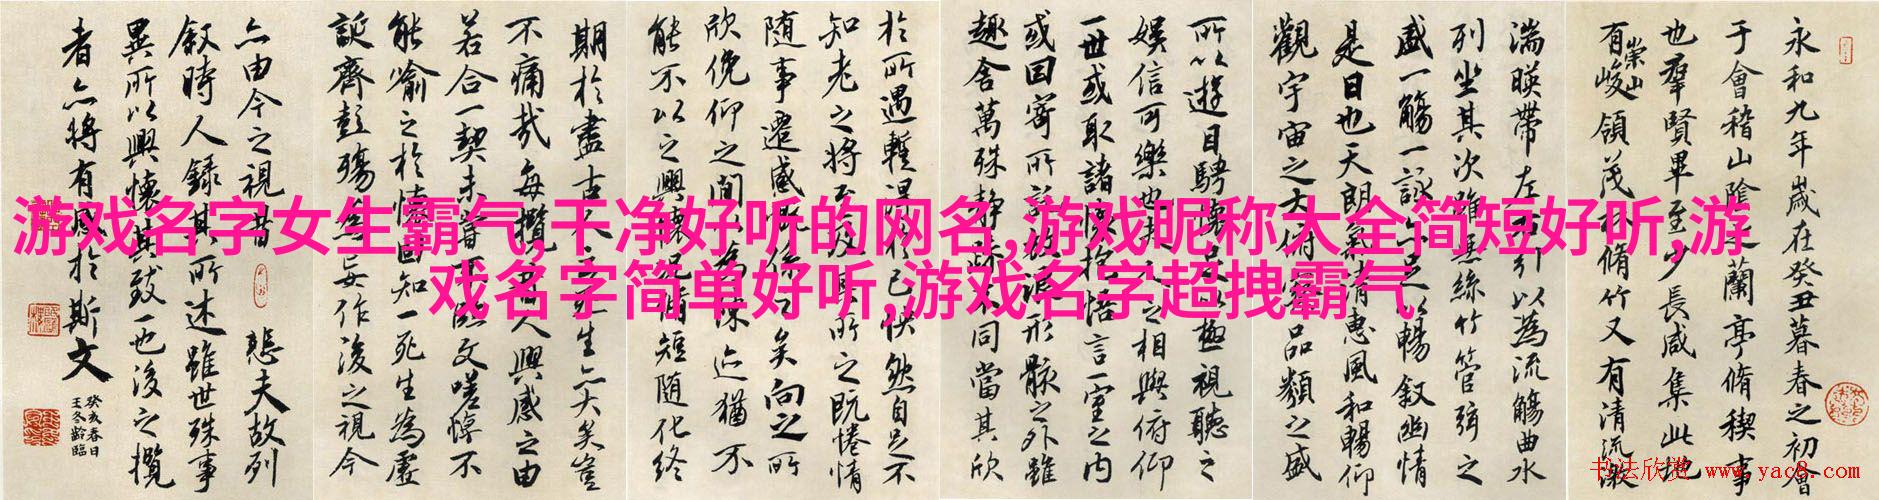 游戏名字女生霸气,干净好听的网名,游戏昵称大全简短好听,游
戏名字简单好听,游戏名字超拽霸气
永和九年歲在癸丑暮春之初會
于會稽山陰之蘭亭脩稧事
也羣賢畢至少長咸集此地
有崇山峻領茂林脩竹又有清流激
湍暎帶左右引以為流觴曲水
列坐其次雖無絲竹管弦之
盛一觴一詠亦足以暢敘幽情
是日也天朗氣清惠風和暢仰
觀宇宙之大俯察品類之盛
所以遊目騁懷足以極視聽之
娛信可樂也夫人之相與俯仰
一世或取諸懷抱悟言一室之內
或因寄所託放浪形骸之外雖
趣舍萬殊靜躁不同當其欣
於所遇暫得於己快然自足不
知老之將至及其所之既惓情
随事遷感慨係之矣向之所
欣俛仰之間以為陳迹猶不
能不以之興懷況脩短随化終
期於盡古人云死生亦大矣豈
不痛哉每攬昔人興感之由
若合一契未嘗不臨文嗟悼不
能喻之於懷固知一死生為虛
誕齊彭殤為妄作後之視今
亦由今之視昔悲夫故列
敘時人錄其所述雖世殊事
異所以興懷其致一也後之攬
者亦將有感於斯文
癸亥春日
王冬齡臨
书法欣赏 www.yac8.com